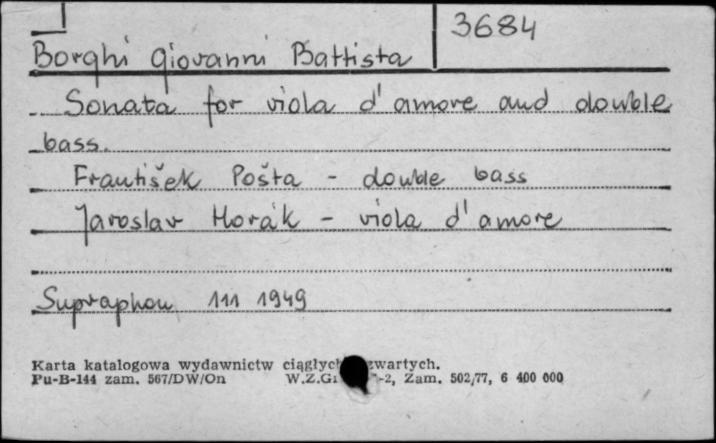 3684
Borghi Giovanni Battista
Sonata for viola d'amore and double
bass.
František Pošta - double bass
Jaroslav Horák - viola d'amore
Supraphon 111 1949
Karta katalogowa wydawnictw zwartych.
Pu-B-144 zam. 567/DW/On -2, Zam. 502/77, 6 400 000